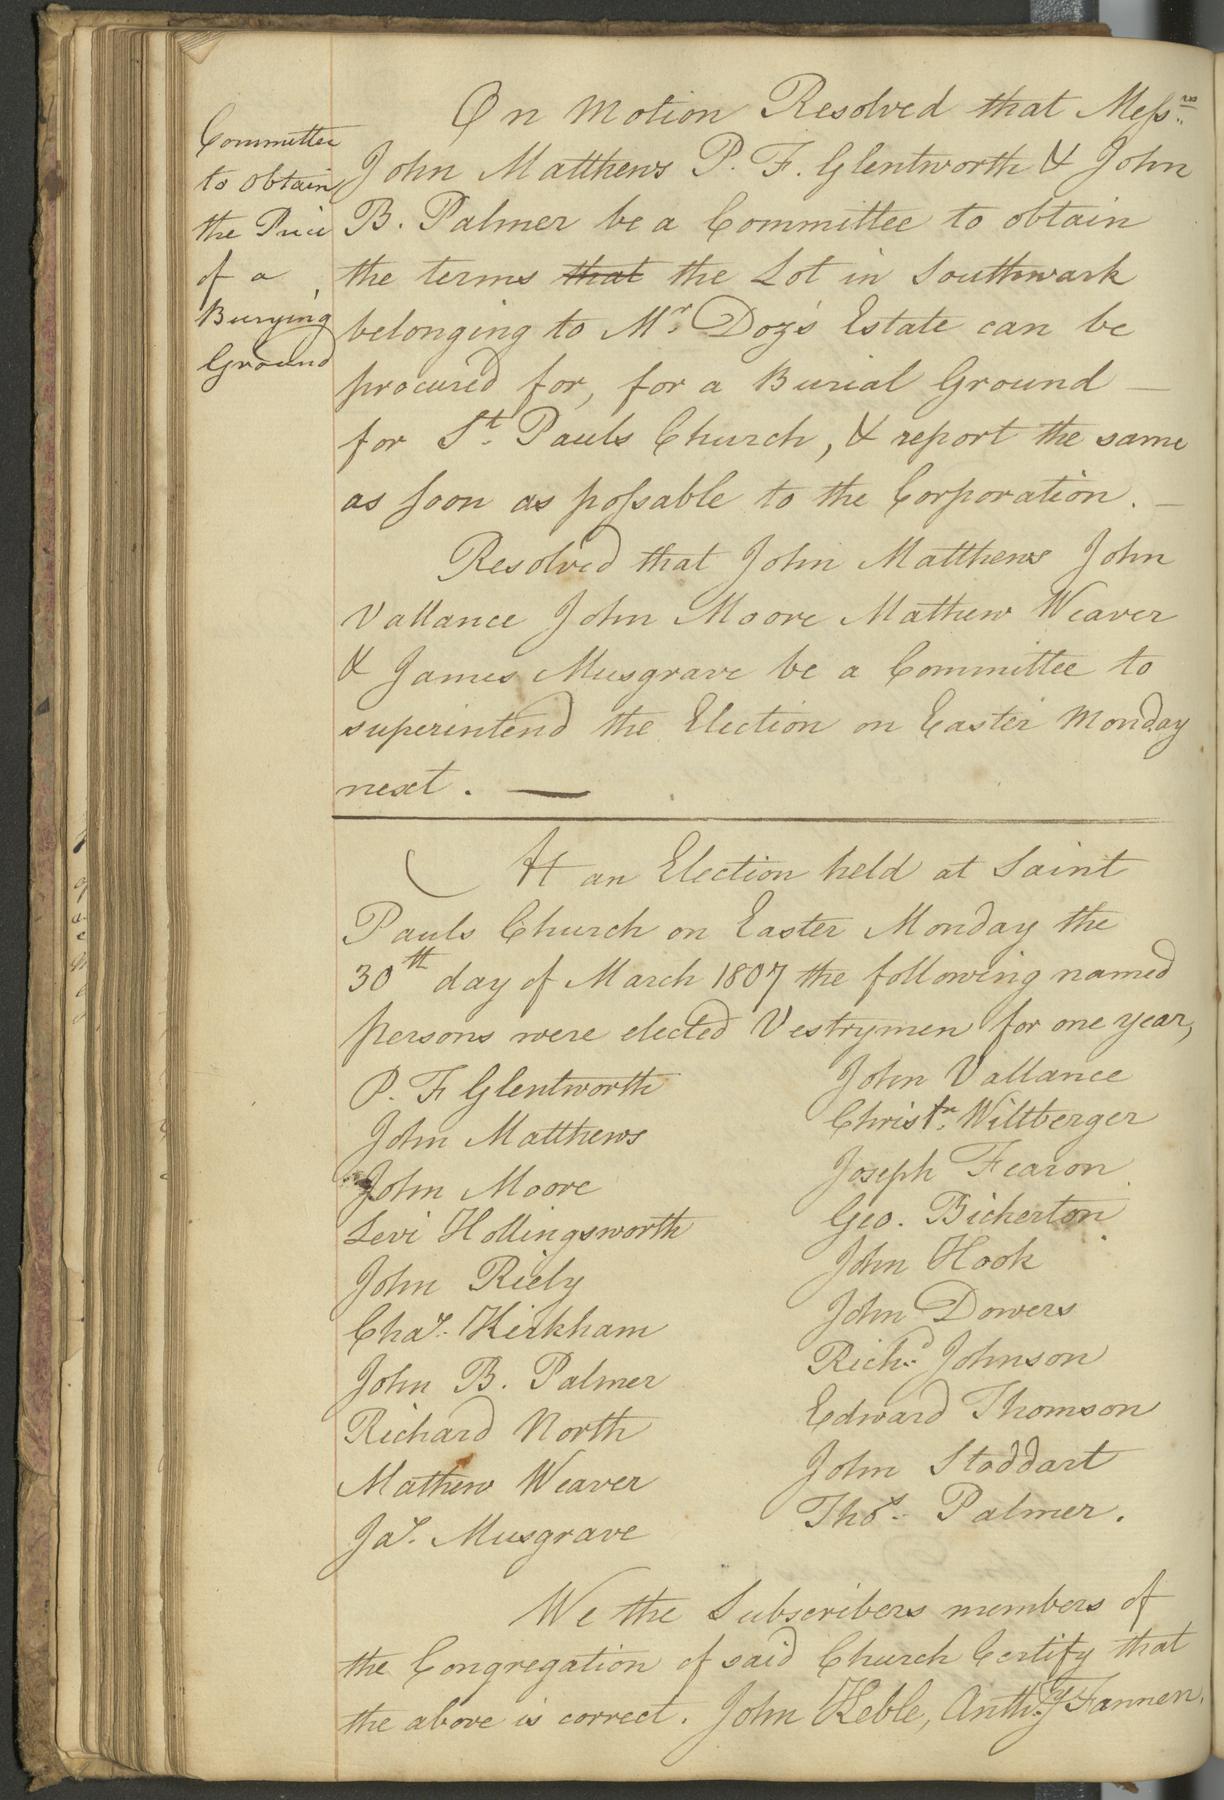 Committee
to obtain
the Price
of a
Burying
Ground
On Motion Resolved that Messrs.
John Matthews P. F. Glentworth & John
B. Palmer be a Committee to obtain
the terms that the Lot in Southwark
belonging to Mr. Doz's Estate can be
procured for, for a Burial Ground —
for St. Pauls Church, & report the same
as soon as possable to the Corporation. —
Resolved that John Matthews John
Vallance John Moore Mathew Weaver
& James Musgrave be a Committee to
superintend the Election on Easter Monday
next. —
At an Election held at Saint
Pauls Church on Easter Monday the
30th day of March 1807 the following named
persons were elected Vestrymen for one year,
P. F Glentworth
John Matthews
John Moore
Levi Hollingsworth
John Riely
Chas. Kirkham
John B. Palmer
Richard North
Mathew Weaver
Jas. Musgrave
John Vallance
Christr. Wiltberger
Joseph Fearon
Geo. Bickerton
John Hook
John Dowers
Richd. Johnson
Edward Thomson
John Stoddart
Thos. Palmer.
We the Subscribers members of
the Congregation of said Church Certify that
the above is correct. John Keble, Anthy. Fannen.